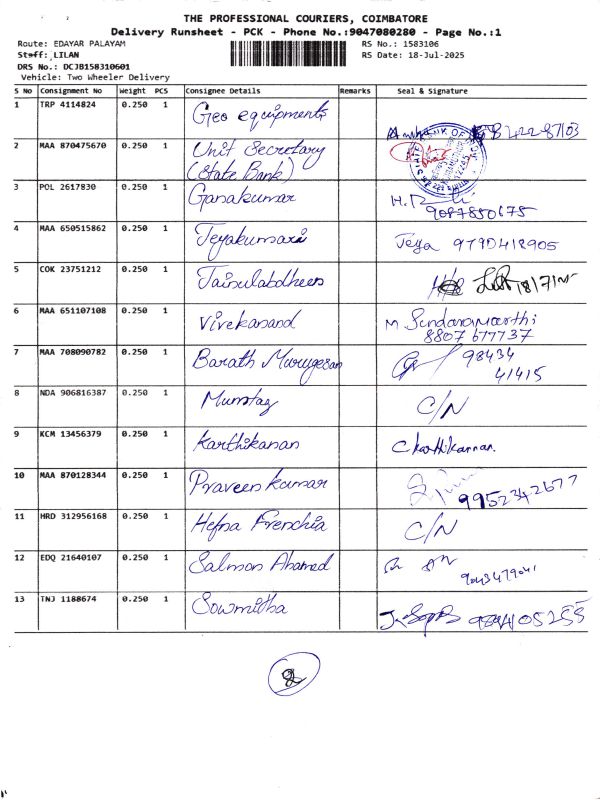 THE PROFESSIONAL COURIERS, COIMBATORE
Delivery Runsheet - PCK - Phone No.:9047080280 - Page No.:1
Route: EDAYAR PALAYAM RS No.: 1583106
Staff: LILAN RS Date: 18-Jul-2025
DRS No.: DCJB158310601
Vehicle: Two Wheeler Delivery
S No Consignment No Weight PCS Consignee Details Remarks Seal & Signature
1 TRP 4114824 0.250 1 Geo equipments
2 MAA 870475670 0.250 1 Unit Secretary
(State Bank)
3 POL 2617830 0.250 1 Ganakumar
9087850675
4 MAA 650515862 0.250 1 Jeyakumari Jeya 9790418905
5 COK 23751212 0.250 1 Jainulabdheen 18/7/25
6 MAA 651107108 0.250 1 Vivekanand M Sundaramoorthi
8807677737
7 MAA 708090782 0.250 1 Barath Murugesan 98434
41415
8 NDA 906816387 0.250 1 Mumtaz C/N
9 KCM 13456379 0.250 1 Karthikanan C karthikannan.
10 MAA 870128344 0.250 1 Praveen kumar 9952342677
11 HRD 312956168 0.250 1 Hefna Frenchia C/N
12 EDQ 21640107 0.250 1 Salmon Ahamad
9043479041
13 TNJ 1188674 0.250 1 Sowmitha